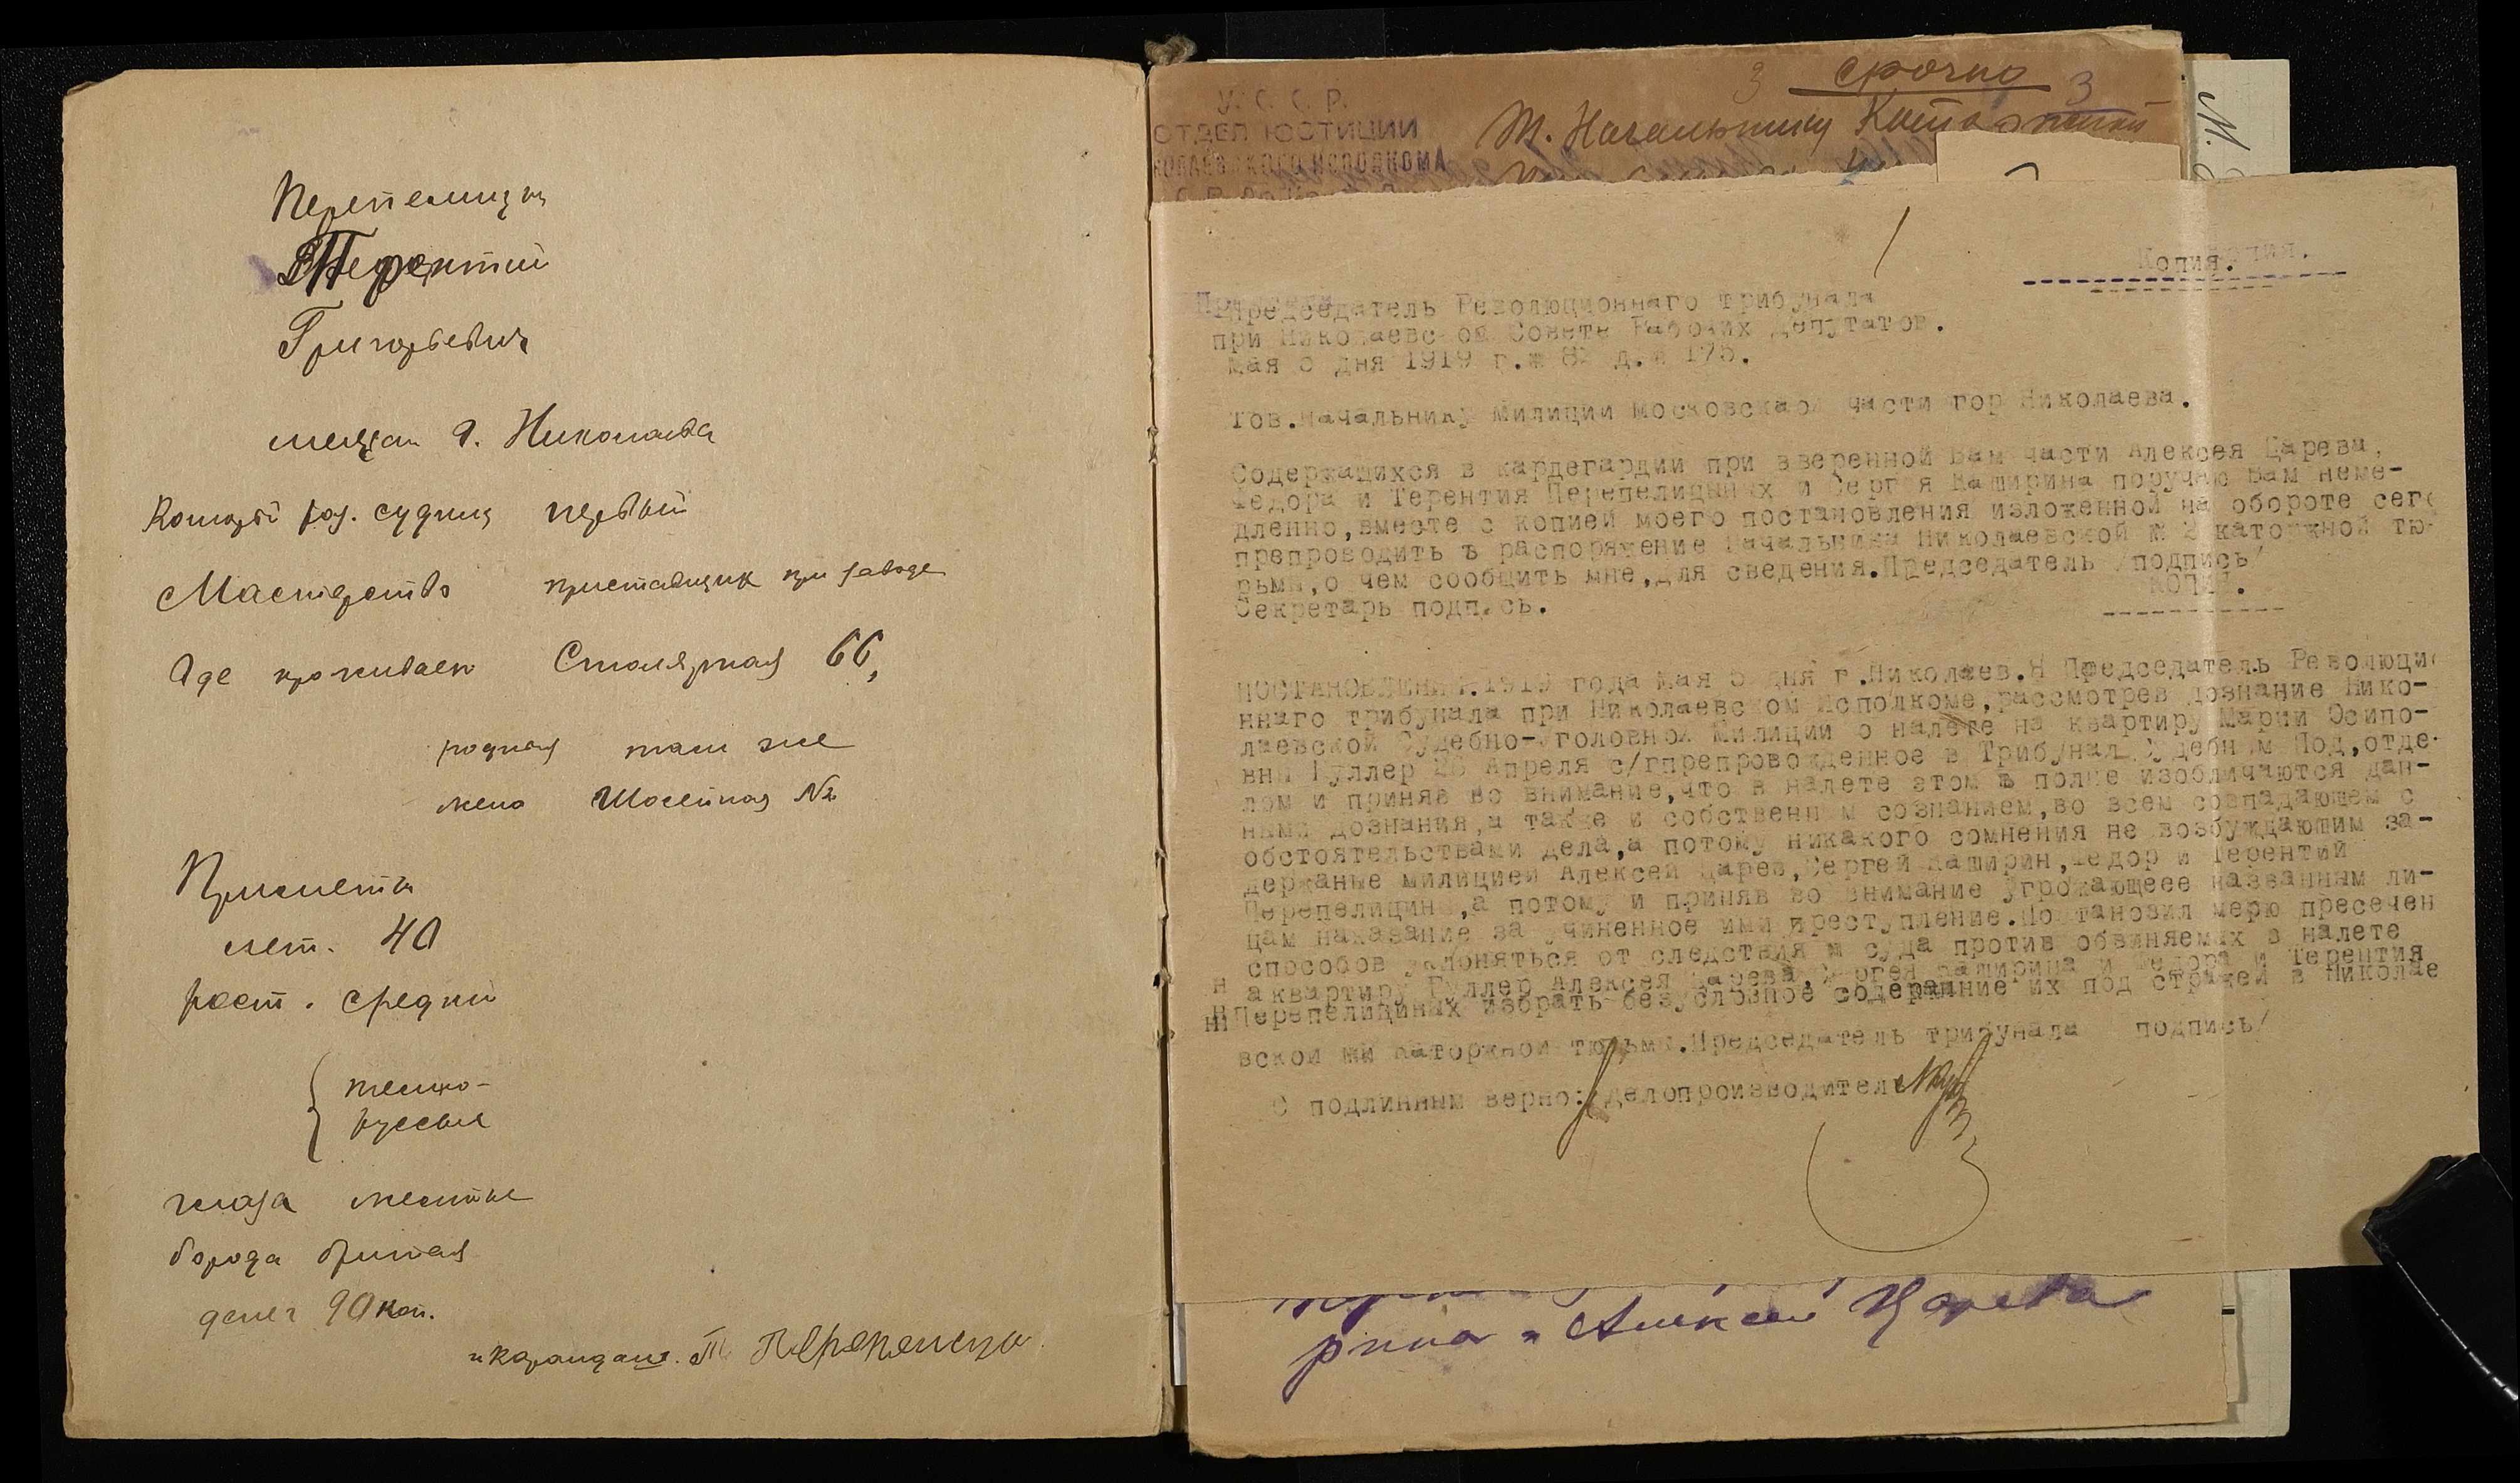 Перепелицин
Терентий
Григорьевич
мещан г. Николаева
Который раз. судищ первый
Мастерство приставщик при заводе
Где проживает Столярная 66,
родная там же
жена Шосейная №
Приметы
лет. 40
рост. средний
темно-
русые
глаза желтые
борода бритая
денег 90 коп.
и карандаш. Т Перепелицин
срочно
3 3
У. С. С. Р.
ОТДЕЛ ЮСТИЦИИ
Т. Начальнику
Копия.
Председатель Революционнаго трибунала
при Николаевском Совете Рабочих депутатов.
мая 5 дня 1919 г. № 175.
Тов. Начальнику Милиции Московской части гор Николаева.
Содержащихся в кардегардии при вверенной Вам части Алексея Царева,
Федора и Терентия Перепелициных и Сергея Каширина поручаю Вам неме-
дленно, вместе с копией моего постановления изложенной на обороте сего
препроводить в распоряжение Начальника Николаевской № 2 каторжной тю-
рьмы, о чем сообщить мне, для сведения. Председатель /подпись/
Секретарь подпись.
КОПИЯ.
ПОСТАНОВЛЕНИЕ. 1919 года мая 5 дня г. Николаев. Я Председатель Революцио
ннаго трибунала при Николаевском Исполкоме, рассмотрев дознание Нико-
лаевской Судебно-уголовной Милиции о налете на квартиру Марии Осипо-
вны Гуллер 26 Апреля с/г препровожденное в Трибунал Судебным Под, отде-
лом и приняв во внимание, что в налете этом в полне изобличаются дан-
ными дознания, а также и собственным сознанием, во всем совпадающем с
обстоятельствами дела, а потому никакого сомнения не возбуждающим за-
держаные милицией Алексей Царев, Сергей Каширин, Федор и Терентий
Перепелицин, а потому и приняв во внимание угрожающеее названным ли-
цам наказание за учиненное ими преступление. Постановил мерю пресечен
способов уклоняться от следствия и суда против обвиняемых в налете
н а квартиру Гуллер Алексея Царева, Сергея Каширина и Федора и Терентия
Перепелициных избрать безусловное содержание их под стражей в Николае
вской каторжной тюрьмы. Председатель трибунала подпись/
С подлинным верно: делопроизводитель
рина и Алексей Царева